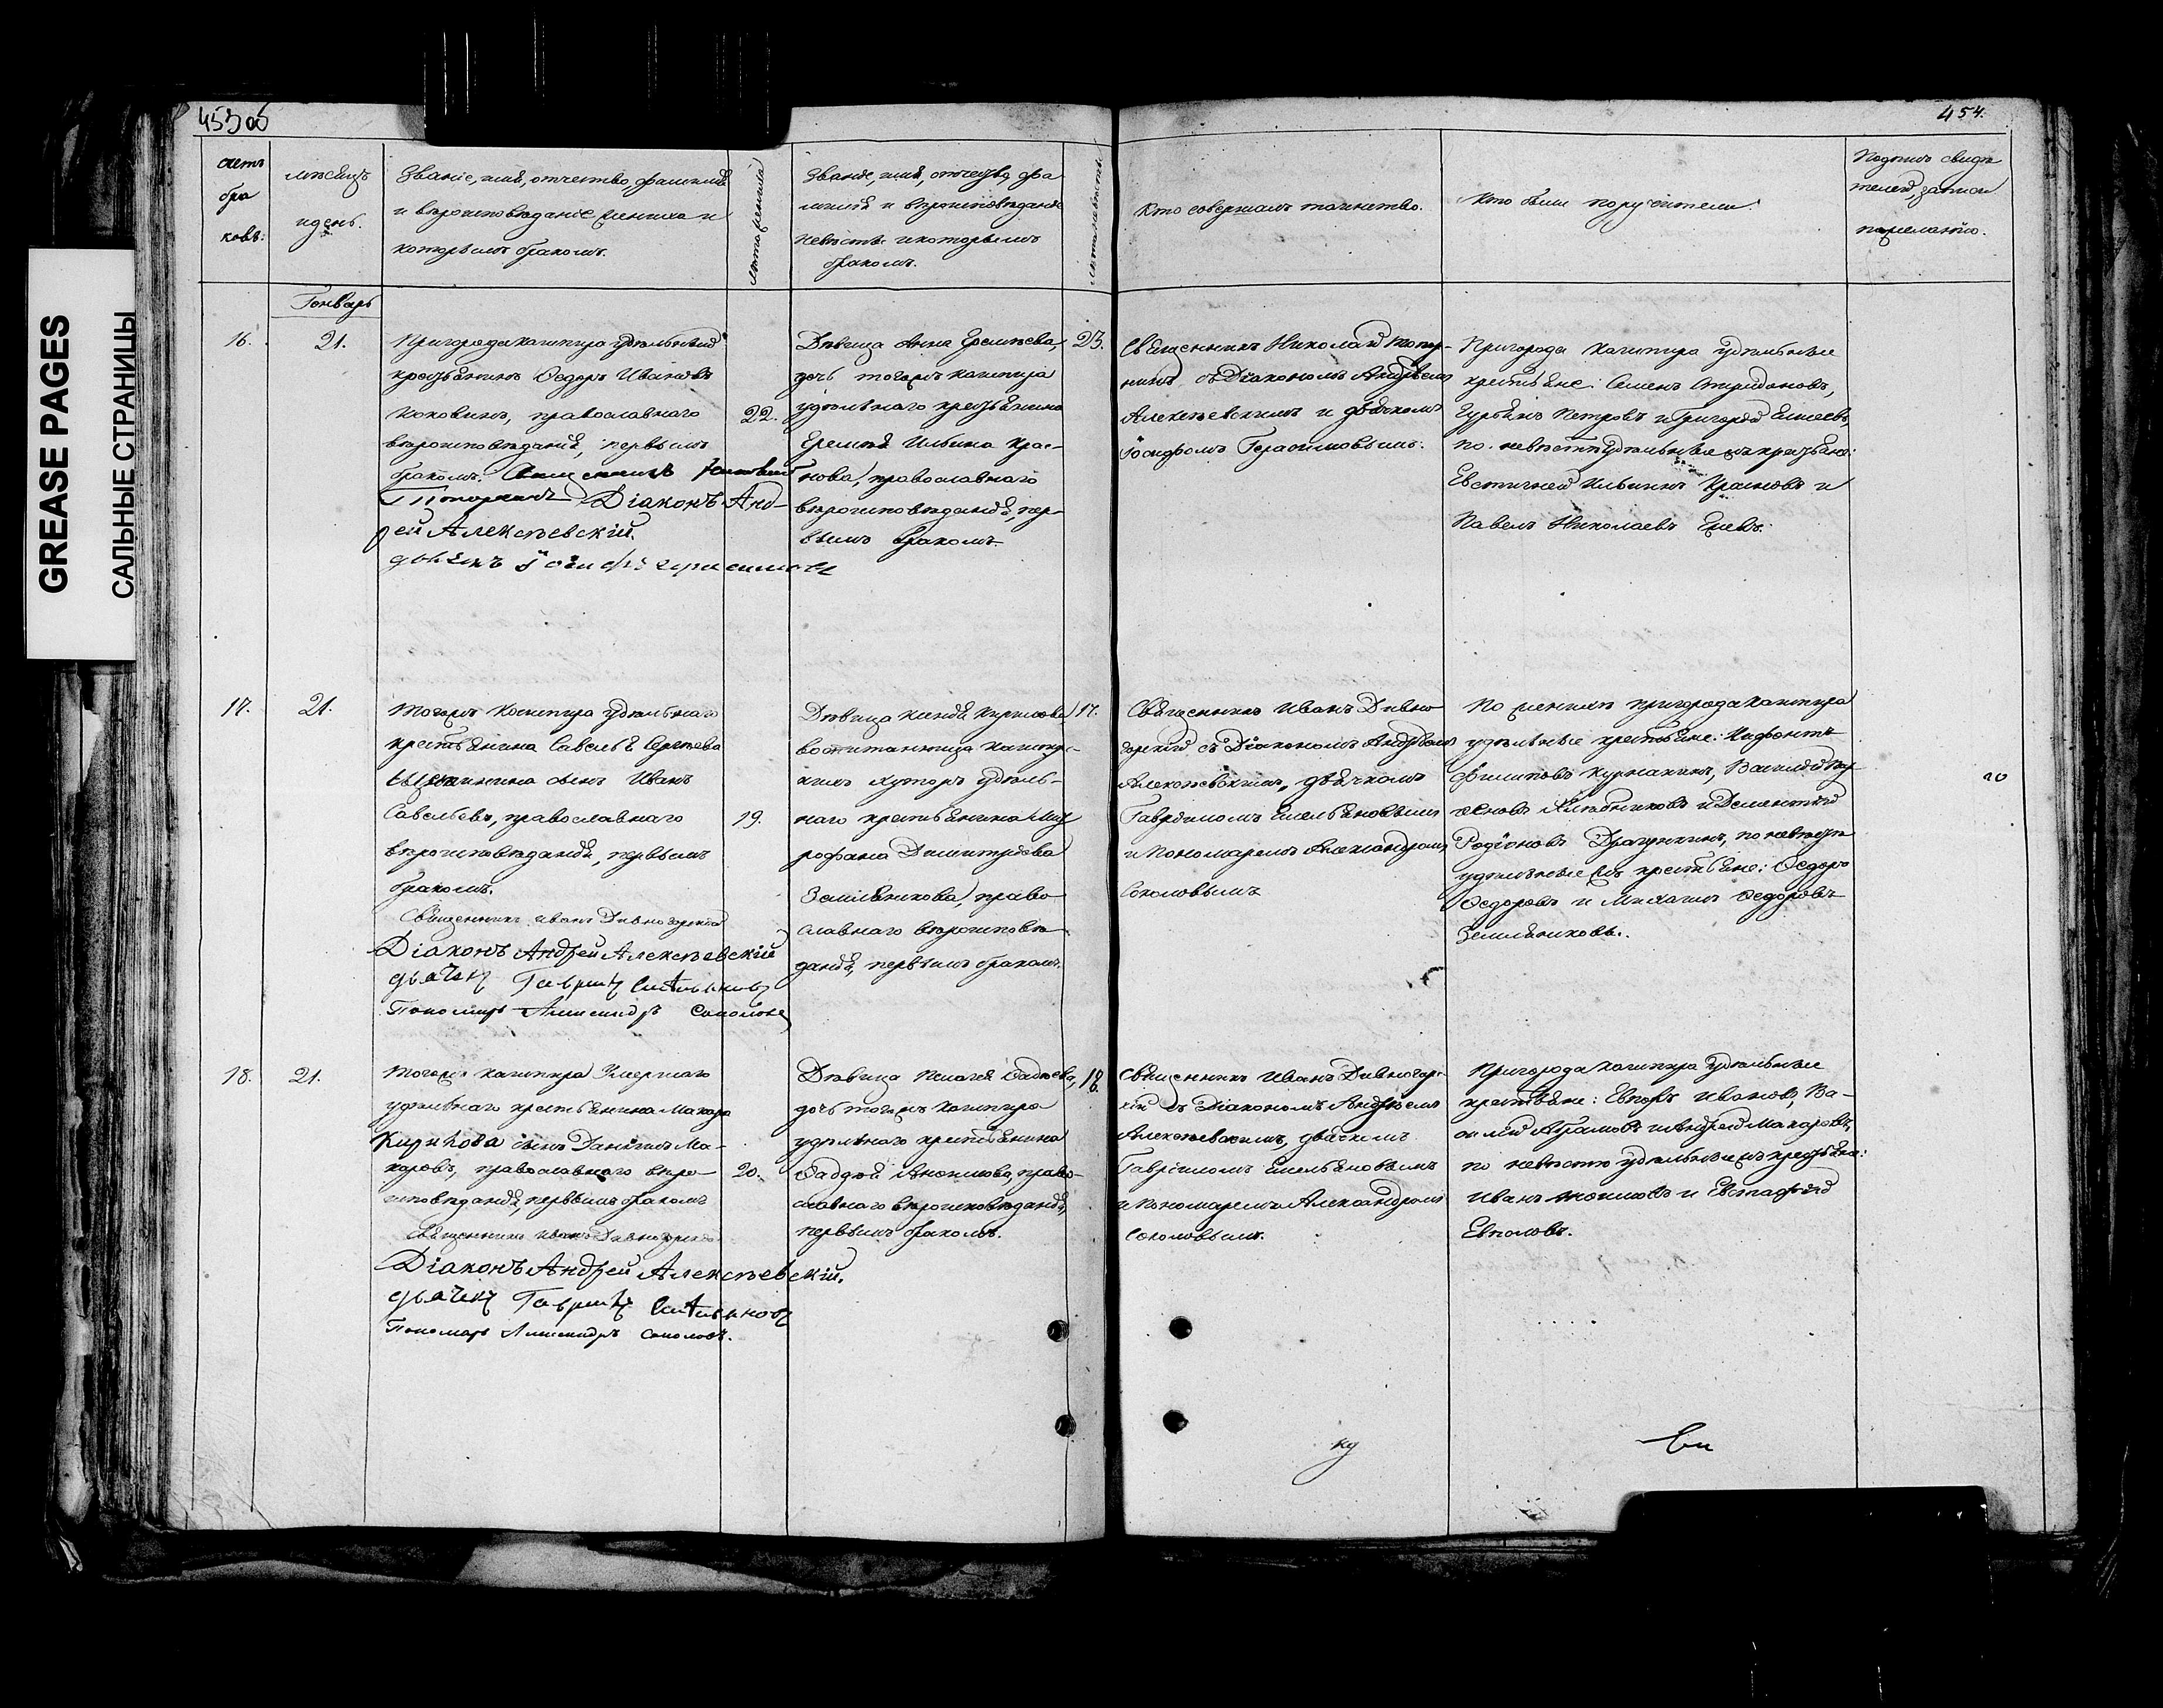 453об
454.
GREASE PAGES
САЛЬНЫЕ СТРАНИЦЫ
счетъ
бра
ковъ.
мѣсяцъ
и день.
Званіе, имя, отчество, фамилія
и вѣроисповѣданіе жениха и
которымъ бракомъ.
лѣта жениха
Званіе, имя, отчество, фа
милія и вѣроисповѣданіе
невѣсты и которымъ
бракомъ.
лѣта невѣсты
Кто совершалъ таинство.
Кто были поручители.
Подпись свидѣ
телей, записи
по желанію.
Генварь
16.
21.
Пригорода Кашпира удѣльный
крестьянинъ Ѳедоръ Ивановъ
Коковинъ, православнаго
вѣроисповѣданія, первымъ
бракомъ. Священникъ
Топорнинъ Діаконъ Анд-
рей Алексѣевскій.
дьячекъ Іосифъ Герасимовъ
22.
Дѣвица Анна Еремѣева,
дочь тогожъ Кашпира
удѣльнаго крестьянина
Еремѣя Ильина Крас-
нова, православнаго
вѣроисповѣданія, пер-
вымъ бракомъ.
23.
Священникъ Николай Топор-
нинъ съ Діакономъ Андреемъ
Алексѣевскимъ и дьячкомъ
Іосифомъ Герасимовымъ.
Пригорода Кашпира удѣльные
крестьяне: Семенъ Спиридоновъ,
Гурьянъ Петровъ и Григорій Елисеевъ,
по невѣстѣ удѣльные жъ крестьяне:
Евстигней Ильинъ Красновъ и
Павелъ Николаевъ
17.
21.
Тогожъ Кашпира удѣльнаго
крестьянина Савелья Сергѣева
сынъ Иванъ
Савельевъ, православнаго
вѣроисповѣданія, первымъ
бракомъ.
Священникъ Иванъ Дивногорскій
Діаконъ Андрей Алексѣевскій
дьячекъ Гаврилъ Емельяновъ
Пономарь Александръ Соколовъ
19.
Дѣвица Ксенія Кирилова
воспитанница Кашпир-
скихъ хуторъ удѣль-
наго крестьянина Мит
рофана Димитріева
Земляникова, право
славнаго вѣроисповѣ
данія, первымъ бракомъ.
17.
Священникъ Иванъ Дивно
горскій съ Діакономъ Андреемъ
Алексѣевскимъ, дьячкомъ
Гавріиломъ Емельяновымъ
и Пономаремъ Александромъ
Соколовымъ
По женихѣ пригорода Кашпира
удѣльные крестьяне: Ксенофонтъ
Филиповъ Курмакинъ, Василій
Хлѣбниковъ и Дементій
Родіоновъ Драгункинъ, по невѣстѣ
удѣльные жъ крестьяне: Ѳедоръ
Ѳедоровъ и Михаилъ Ѳедоровъ
Земляниковы.
18.
21.
Тогожъ Кашпира Умершаго
удѣльнаго крестьянина Макара
Кирикова сынъ Даніилъ Ма-
каровъ, православнаго вѣро-
исповѣданія, первымъ бракомъ
Священникъ Иванъ Дивногорскій
Діаконъ Андрей Алексѣевскій.
дьячекъ Гаврилъ Емельяновъ
Пономарь Александръ Соколовъ.
20.
Дѣвица Пелагія Ѳадѣева,
дочь тогожъ Кашпира
удѣльнаго крестьянина
Ѳаддея Акимова, право-
славнаго вѣроисповѣданія,
первымъ бракомъ.
18.
Священникъ Иванъ Дивногор-
скій съ Діакономъ Андреемъ
Алексѣевскимъ, дьячкомъ
Гавріиломъ Емельяновымъ
и Пономаремъ Александромъ
Соколовымъ.
Пригорода Кашпира удѣльные
крестьяне: Евпоръ Ивановъ, Ва-
силій Абрамовъ и Андрей Макаровъ,
по невѣстѣ удѣльные жъ крестьяне:
Иванъ Акимовъ и Евстафій